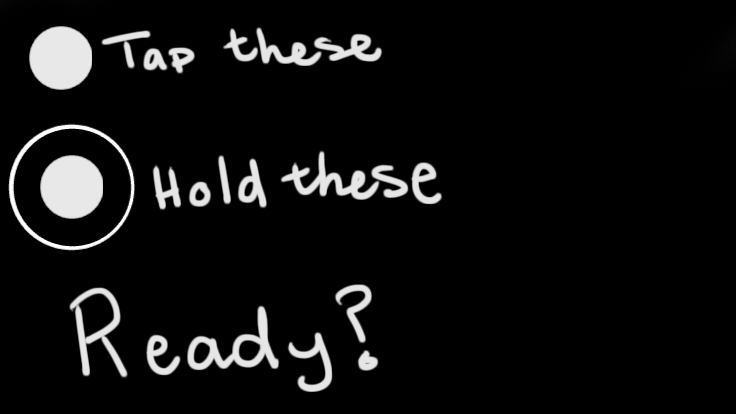 Tap these
Hold these
Ready?